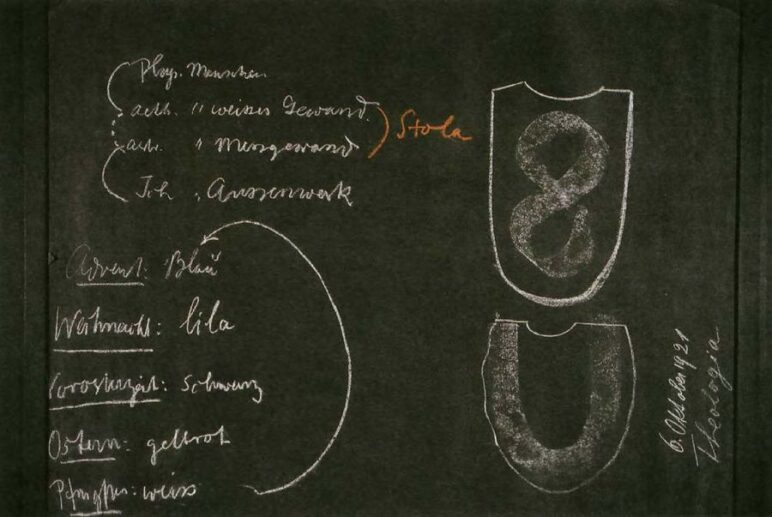 Phys. Menschen
aeth. " weisses Gewand.
astr. " Messgewand
Stola
Ich " Aussenwerk
Advent: Blau
Weihnacht: lila
Vorosterzeit: Schwarz
Ostern: gelbrot
Pfingsten: weiss
6. Oktober 1921
Theologia